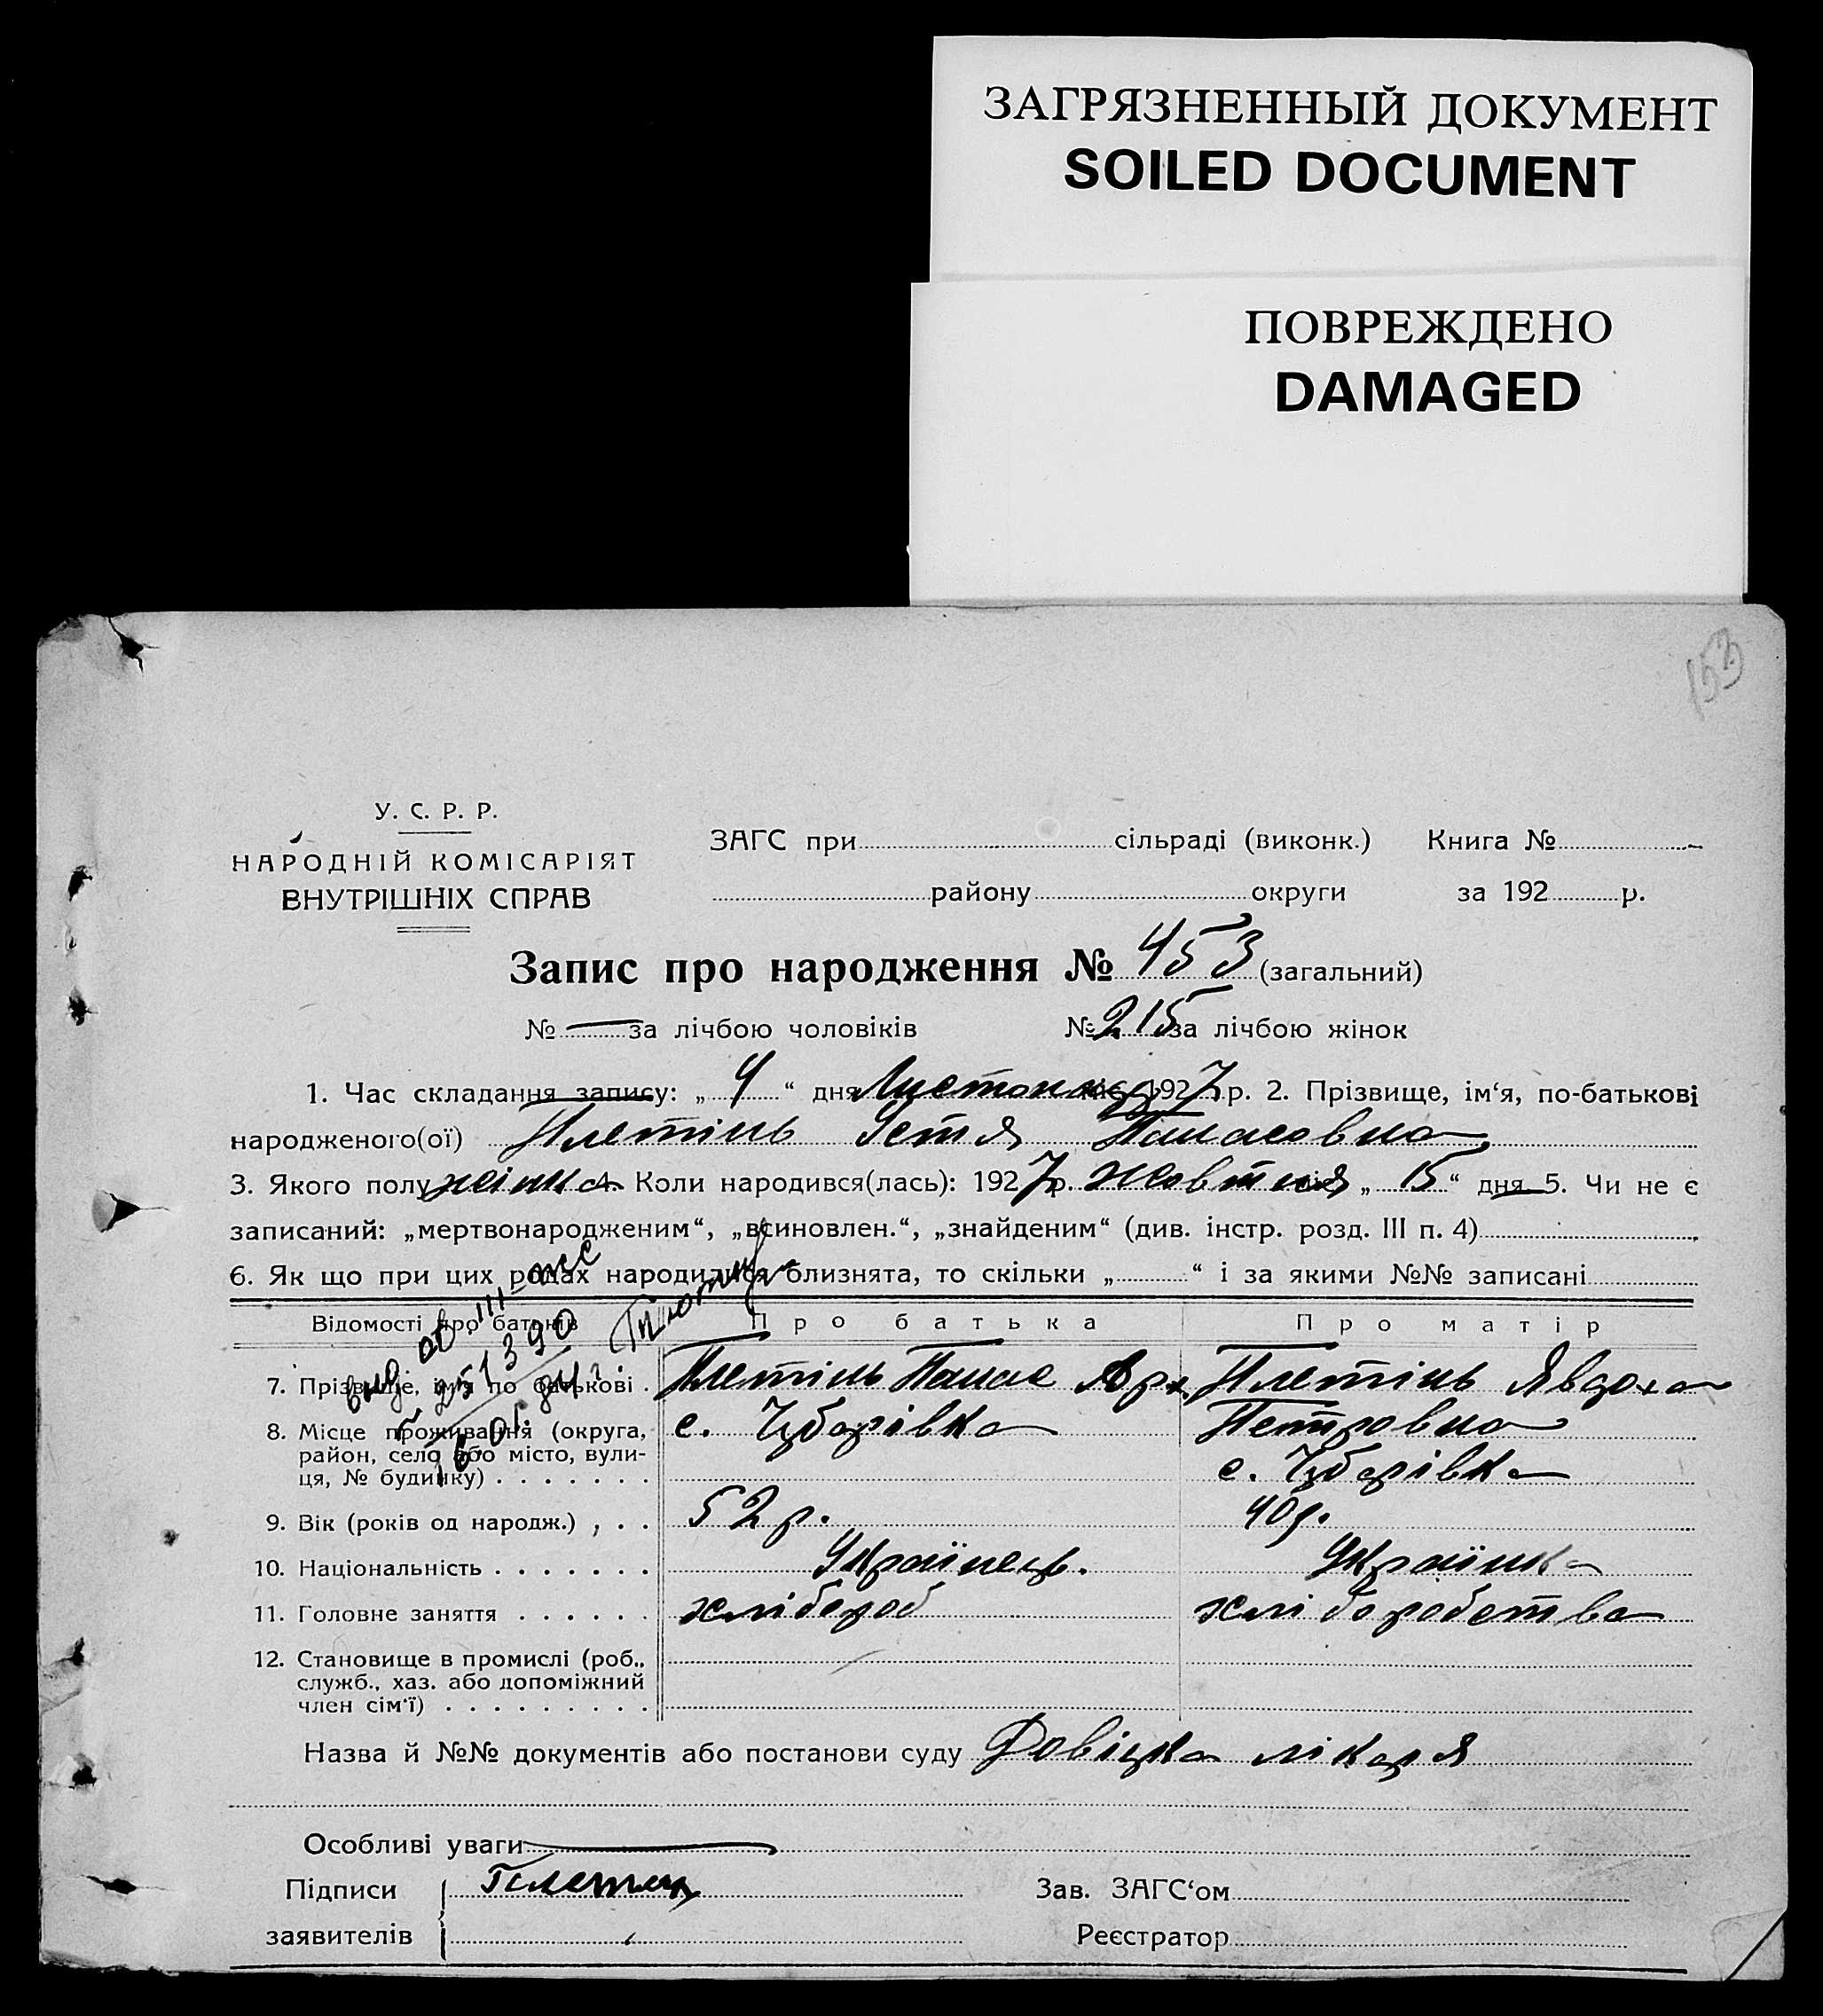 ЗАГРЯЗНЕННЫЙ ДОКУМЕНТ
SOILED DOCUMENT
ПОВРЕЖДЕНО
DAMAGED
153
У. С. Р. Р.
НАРОДНІЙ КОМІСАРІЯТ
ВНУТРІШНІХ СПРАВ
ЗАГС при сільраді (виконк.) Книга №
району округи за 192 р.
Запис про народження № 453 (загальний)
№ — за лічбою чоловіків № 215 за лічбою жінок
1. Час складання запису: „ 4 “ дня Листопада міс. 1927 р. 2. Прізвище, ім‘я, по-батькові
народженого(ої) Плетінь Устя Панасовна
3. Якого полу жінка 4. Коли народився(лась): 1927 р. жовтня міс. „ 15 “ дня 5. Чи не є
записаний: „мертвонародженим“, „всиновлен.“, „знайденим“ (див. інстр. розд. III п. 4)
6. Як що при цих родах народилися близнята, то скільки „ “ і за якими №№ записані
Відомості про батьків Про батька Про матір
7. Прізвище, ім‘я по батькові . Плетінь Панас Плетінь Явдоха
8. Місце проживання (округа, с. Чубарівка Петровна
район, село або місто, вули-
ця, № будинку) . . . . . . . с. Чубарівка
9. Вік (років од народж.) , . . 52 р. 40 р.
10. Національність . . . . . . . Українець. Українка
11. Головне заняття . . . . . . хлібороб хліборобства
12. Становище в промислі (роб.,
служб., хаз. або допоміжний
член сім‘ї) . . . . . . . . .
вид. ав III-жс
251390
Назва й №№ документів або постанови суду Довіцка лікаря
Особливі уваги —
Підписи Плетінь Зав. ЗАГС‘ом
заявителів Реєстратор